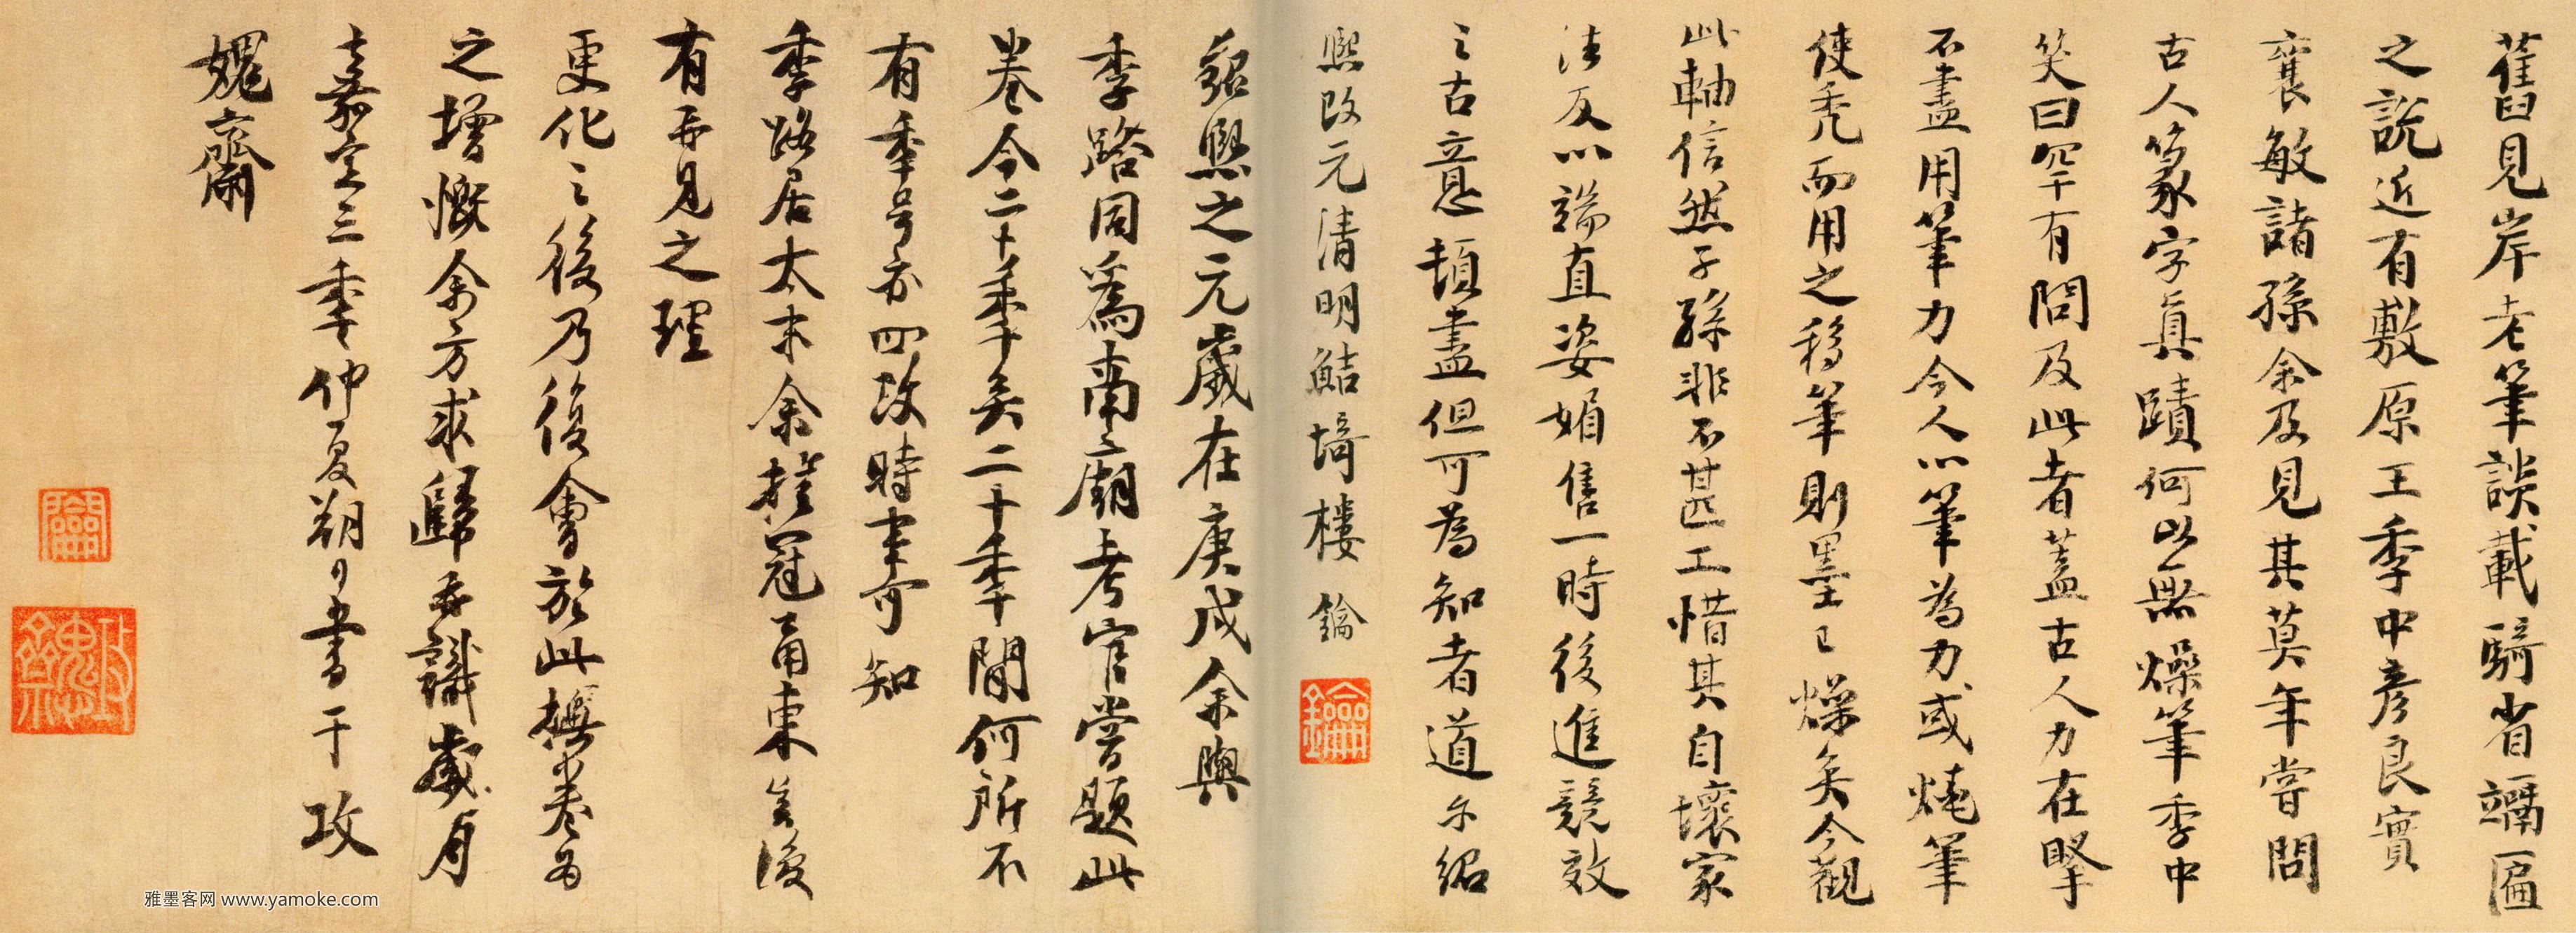 舊見岸老筆談載騎省竵匾
之說近有敷原王季中彥良實
襄敏諸孫余及見其莫年嘗問
古人篆字真蹟何以無燥筆季中
笑曰罕有問及此者蓋古人力在掔
不盡用筆力今人以筆為力或燒筆
使禿而用之移筆則墨已燥矣今觀
此軸信然子孫非不甚工惜其自壞家
法反以端直姿媚售一時後進競效
之古意頓盡但可為知者道尔紹
熙改元清明鮚埼樓鑰
紹熙之元歲在庚戌余與
季路同為南廟考官嘗題此
卷今二十年矣二十季間何所不
有季号亦四改時事可知
季路居太末余挂冠甬東矣後
有再見之理
更化之後乃復會於此撫卷為
之增慨余方求歸再識歲月
嘉定三季仲夏朔日書于攻
媿齋
鑰
鑰
攻媿齋
雅墨客网 www.yamoke.com